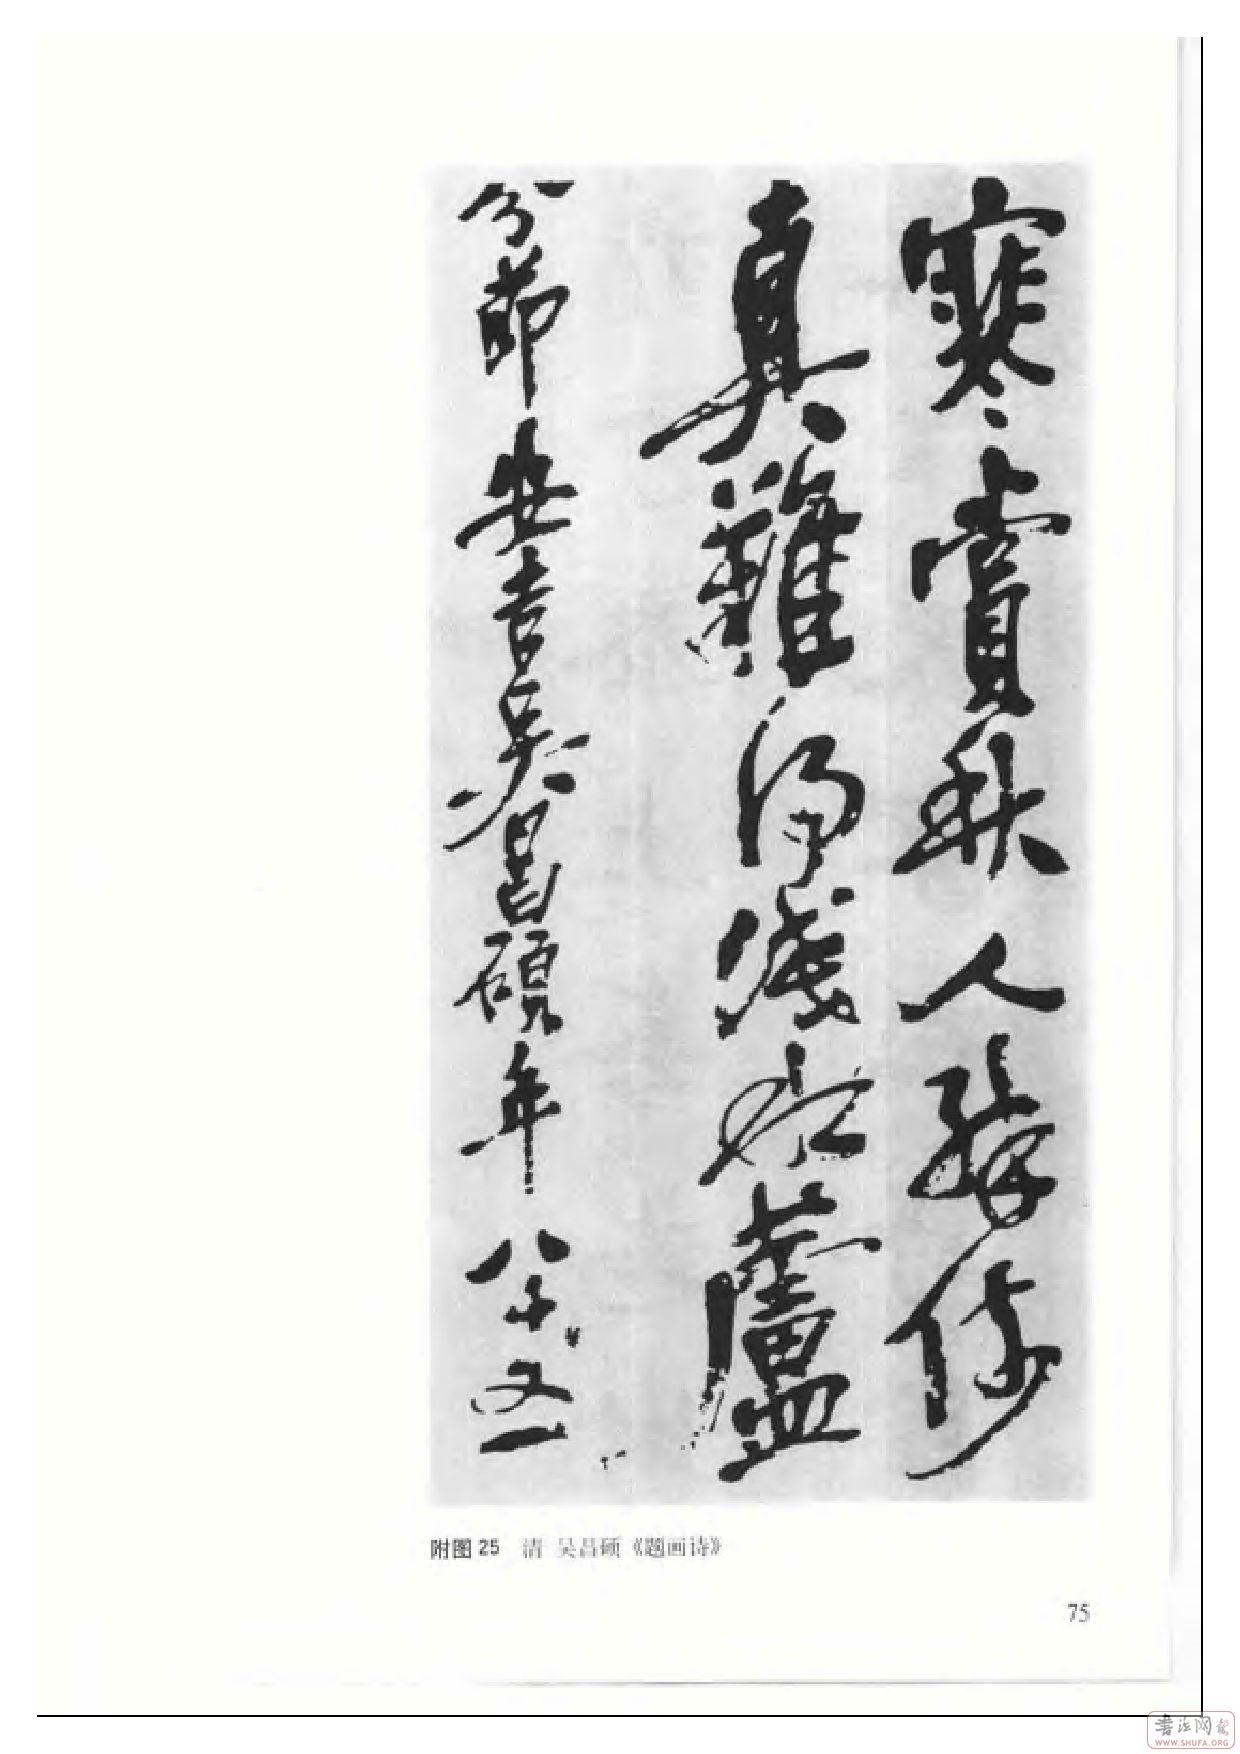 寒賞秋人勝
真難得殘水蘆
節安吉吳昌碩年八十又一
附图25 清 吴昌硕《题画诗》
75
书法网
WWW.SHUFA.ORG